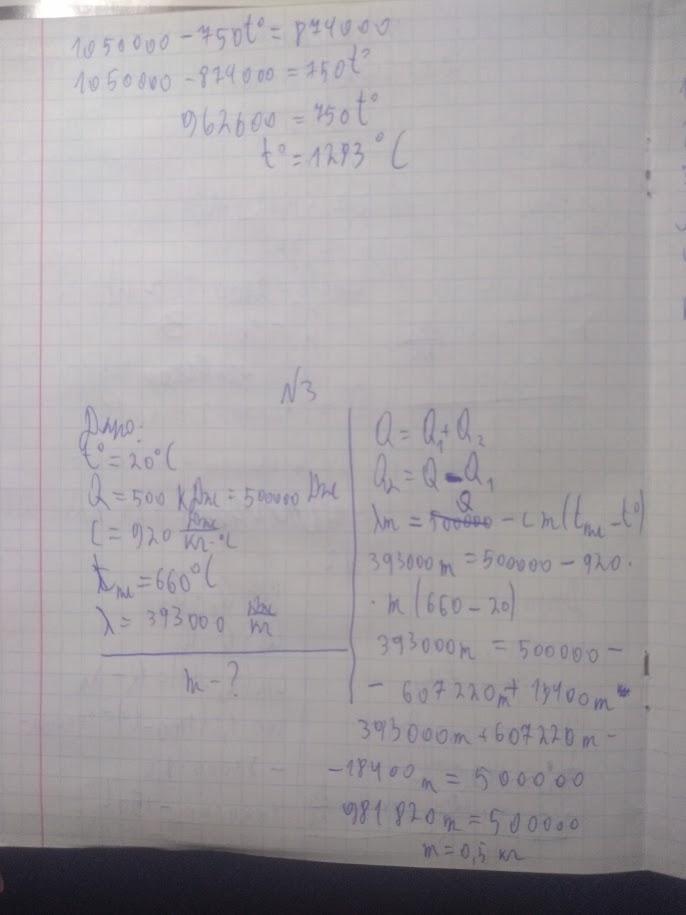 1050000 - 750t° = 874000
1050000 - 874000 = 750t°
962600 = 750t°
t° = 1283 °C
N3
Дано:
t° = 20°C
Q = 500 кДж = 500000 Дж
C = 920 Дж/кг·°C
tпл = 660°C
λ = 393000 Дж/кг
m - ?
Q = Q₁ + Q₂
Q₂ = Q - Q₁
λm = Q - cm(tпл - t°)
393000m = 500000 - 920 ·
· m(660 - 20)
393000m = 500000 -
- 607220m + 18400m
393000m + 607220m -
- 18400m = 500000
981820m = 500000
m = 0,5 кг